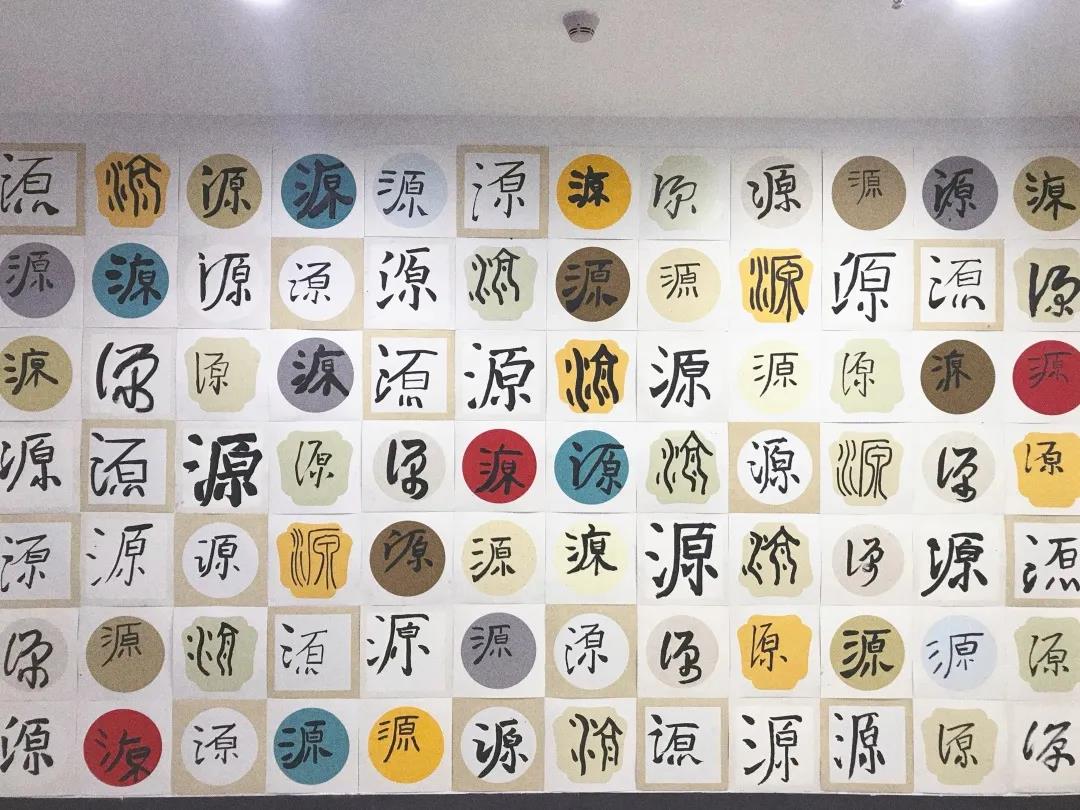 源源源源源源源源源源源源
源源源源源源源源源源源源
源源源源源源源源源源源源
源源源源源源源源源源源源
源源源源源源源源源源源源
源源源源源源源源源源源源
源源源源源源源源源源源源